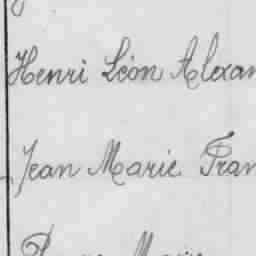 Henri Léon Alexan
Jean Marie Fran
Marie